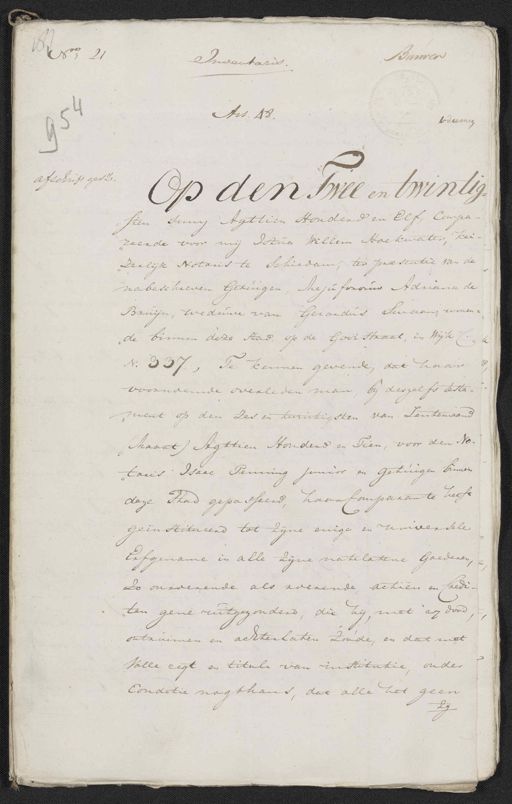 No. 21
Inventaris.
Art. 48.
954
afschrift
Op den Twee en twintig-
sten Juny Agttien Honderd en Elf, Compa-
reerde voor mij Josua Willem Hoekwater, Kei-
zerlijk Notaris te Schiedam, ter presentie van de
nabeschreven Getuigen, Mejufvrouw Adriana de
Bruijn, weduwe van Gerardus, woonen-
de binnen deze Stad op de Gooistraat, in Wijk
N. 337, Te kennen gevende, dat haar
voornoemde overleden man, bij deszelfs testa-
ment op den Zes en twintigsten van Lentemaand
(Maart) Agttien Honderd en Tien, voor den No-
taris Isaac Penning junior en getuigen binnen
deze Stad gepasseerd, haar Comparante heeft
geinstitueerd tot zijne enige en universele
Erfgename in alle zijne natelatene Goederen,
Zo onroerende als roerende actien en Credi-
ten gene uitgezonderd, die hij, met er dood,
ontruimen en achterlaten Zoude, en dat met
volle regt en titule van institutie, onder
Conditie nogthans, dat alle het geen
Zij